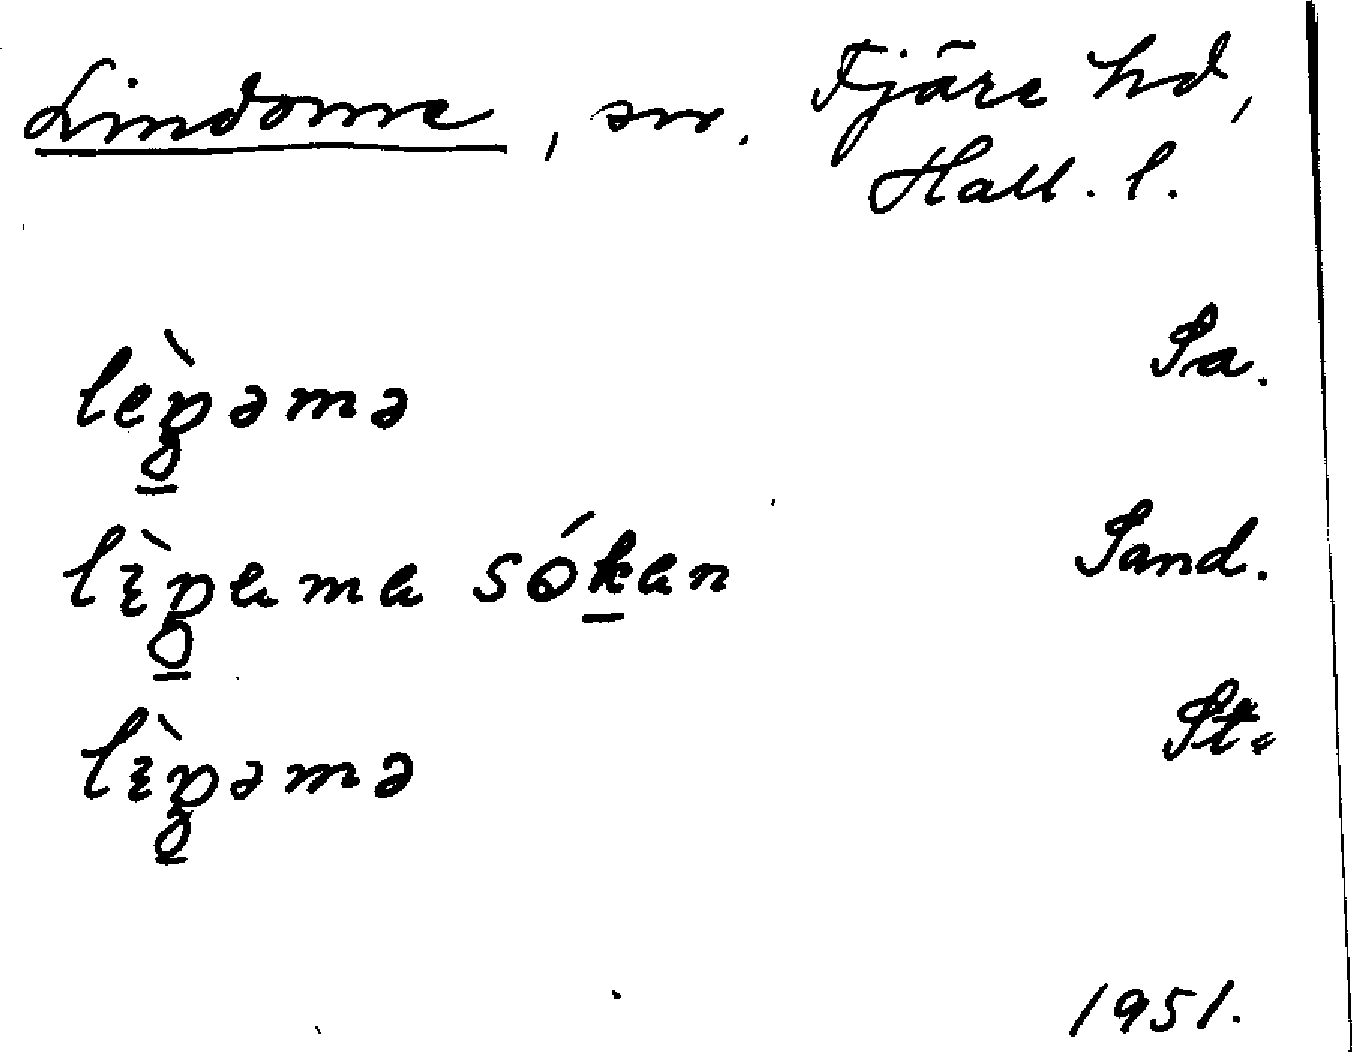 Lindome, sn. Fjäre hd,
Hall. l.
lèŋəmə Sa.
lìŋɐmɐ sókɐn Sand.
lìŋəmə St.
1951.